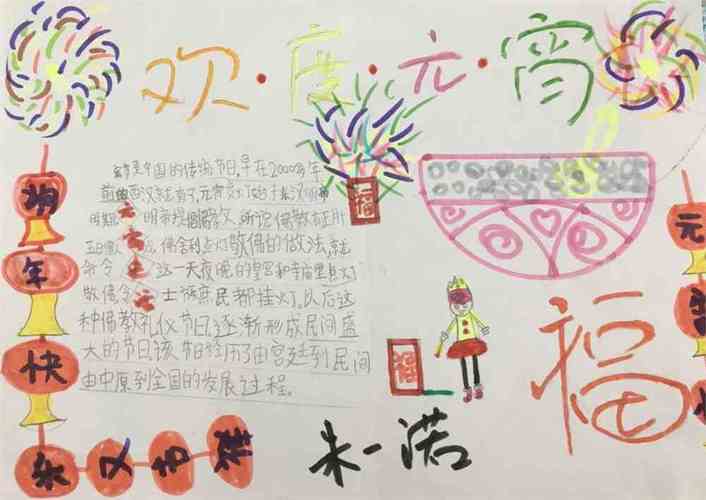 欢·度·元·宵
元宵是中国的传统节日,早在2000多年
前的西汉就有了,元宵赏灯始于东汉明帝
明帝提倡佛教,听说佛教有正月
敬佛的做法,就
命令 这一天夜晚的皇宫和寺庙里点灯
敬佛令 士族庶民都挂灯,以后这
种佛教礼仪节日逐渐形成民间盛
大的节日,该节经历了由宫廷到民间
由中原到全国的发展过程。
福
福
福
狗
年
快
乐
元
宵
朱一诺